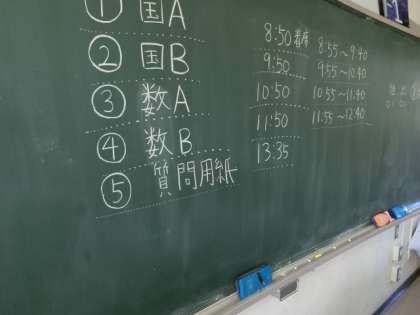 ① 国A 8:50 着席 8:55～9:40
② 国B 9:50 9:55～10:40
③ 数A 10:50 10:55～11:40
④ 数B 11:50 11:55～12:40
⑤ 質問用紙 13:35